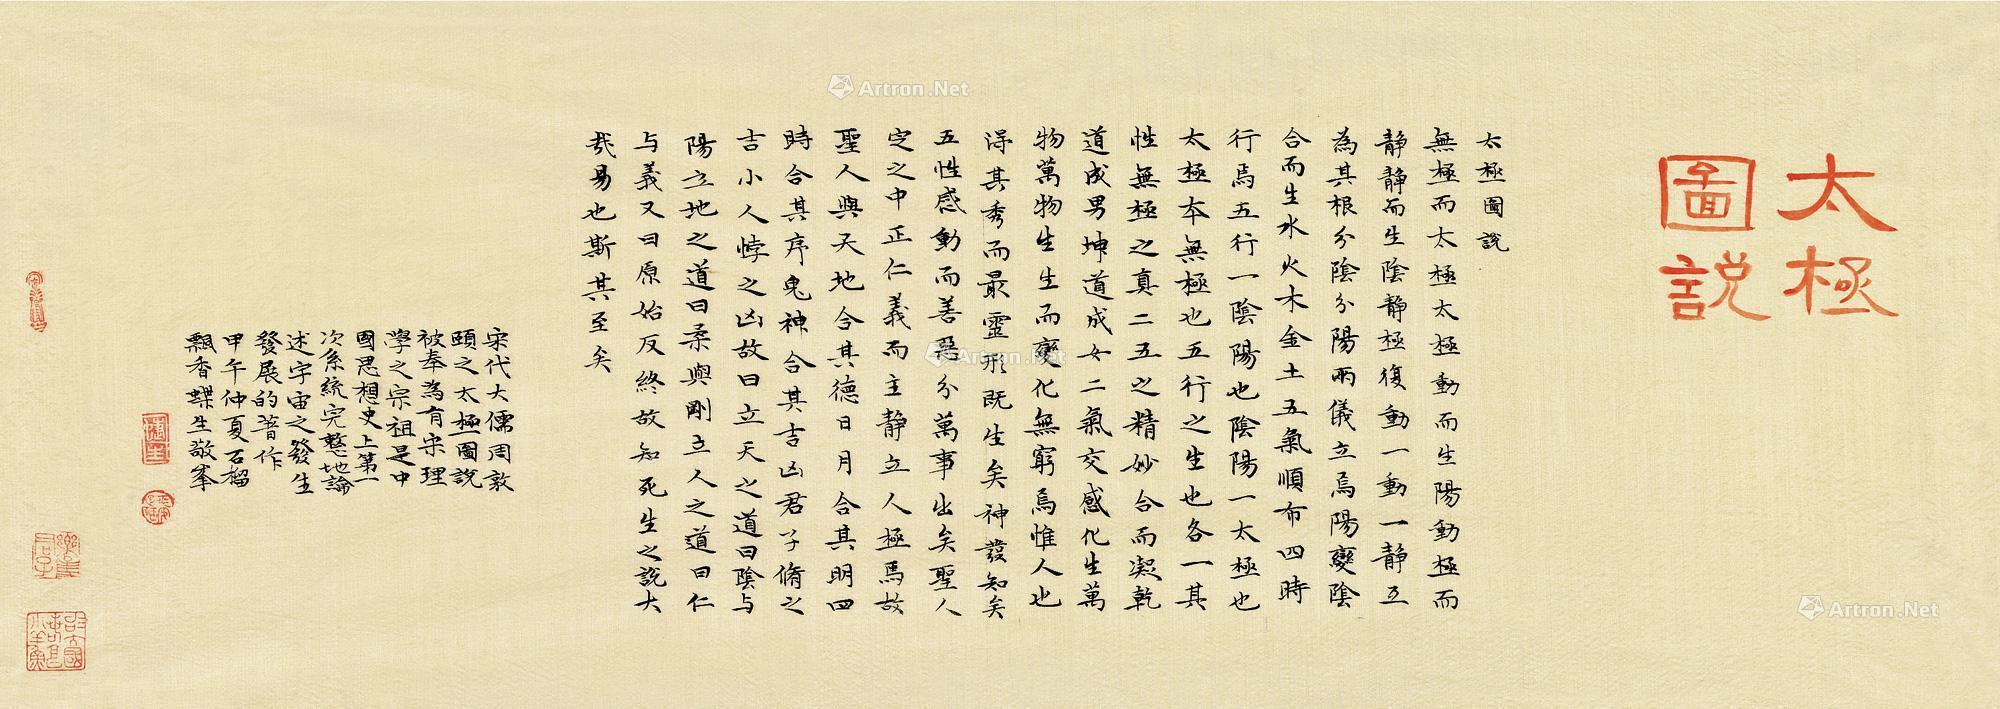 太極
圖說
太極圖說
無極而太極太極動而生陽動極而
靜靜而生陰靜極復動一動一靜互
為其根分陰分陽兩儀立焉陽變陰
合而生水火木金土五氣順布四時
行焉五行一陰陽也陰陽一太極也
太極本無極也五行之生也各一其
性無極之真二五之精妙合而凝乾
道成男坤道成女二氣交感化生萬
物萬物生生而變化無窮焉惟人也
得其秀而最靈形既生矣神發知矣
五性感動而善惡分萬事出矣聖人
定之中正仁義而主靜立人極焉故
聖人與天地合其德日月合其明四
時合其序鬼神合其吉凶君子脩之
吉小人悖之凶故曰立天之道曰陰与
陽立地之道曰柔與剛立人之道曰仁
与義又曰原始反終故知死生之說大
哉易也斯其至矣
宋代大儒周敦
頤之太極圖說
被奉為有宋理
學之宗祖是中
國思想史上第一
次系統完整地論
述宇宙之發生
發展的著作
甲午仲夏石榴
飄香蝶生敬峯
Artron.Net
Artron.Net
Artron.Net